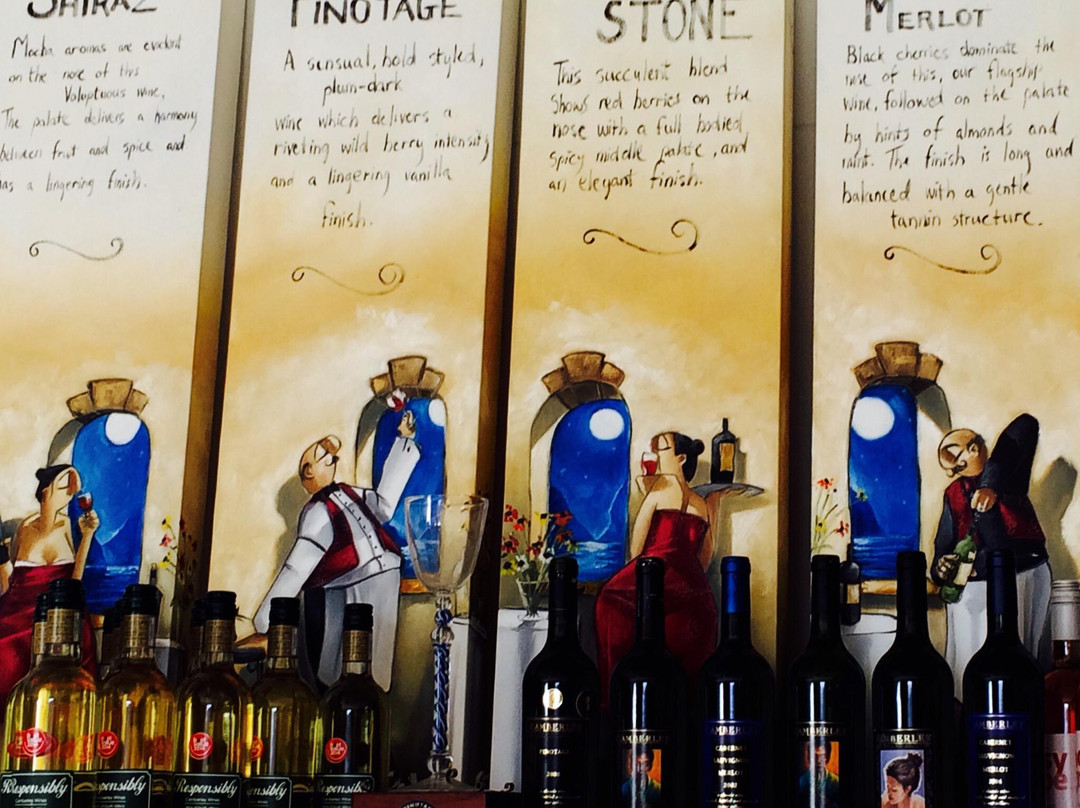 SHIRAZ
Mocha aromas are evident
on the nose of this
Voluptuous wine,
The palate delivers a harmony
between fruit and spice and
has a lingering finish.
PINOTAGE
A sensual, bold styled,
plum-dark
wine which delivers a
riveting wild berry intensity
and a lingering vanilla
finish.
STONE
This succulent blend
Shows red berries on the
nose with a full bodied
spicy middle palate, and
an elegant finish.
MERLOT
Black cherries dominate the
nose of this, our flagship
wine, followed on the palate
by hints of almonds and
mint. The finish is long and
balanced with a gentle
tannin structure.
Responsibly
sponsibly
Responsibly
Responsibly
Responsib
AMBERLEY
PINOTAGE
AMBERLE
AMBERLEY
CABERNET
SAUVIGNON
MERLOT
AMBERLEY
AMBERLEY
AMBERLEY
CABERNET
SAUVIGNON
MERLOT